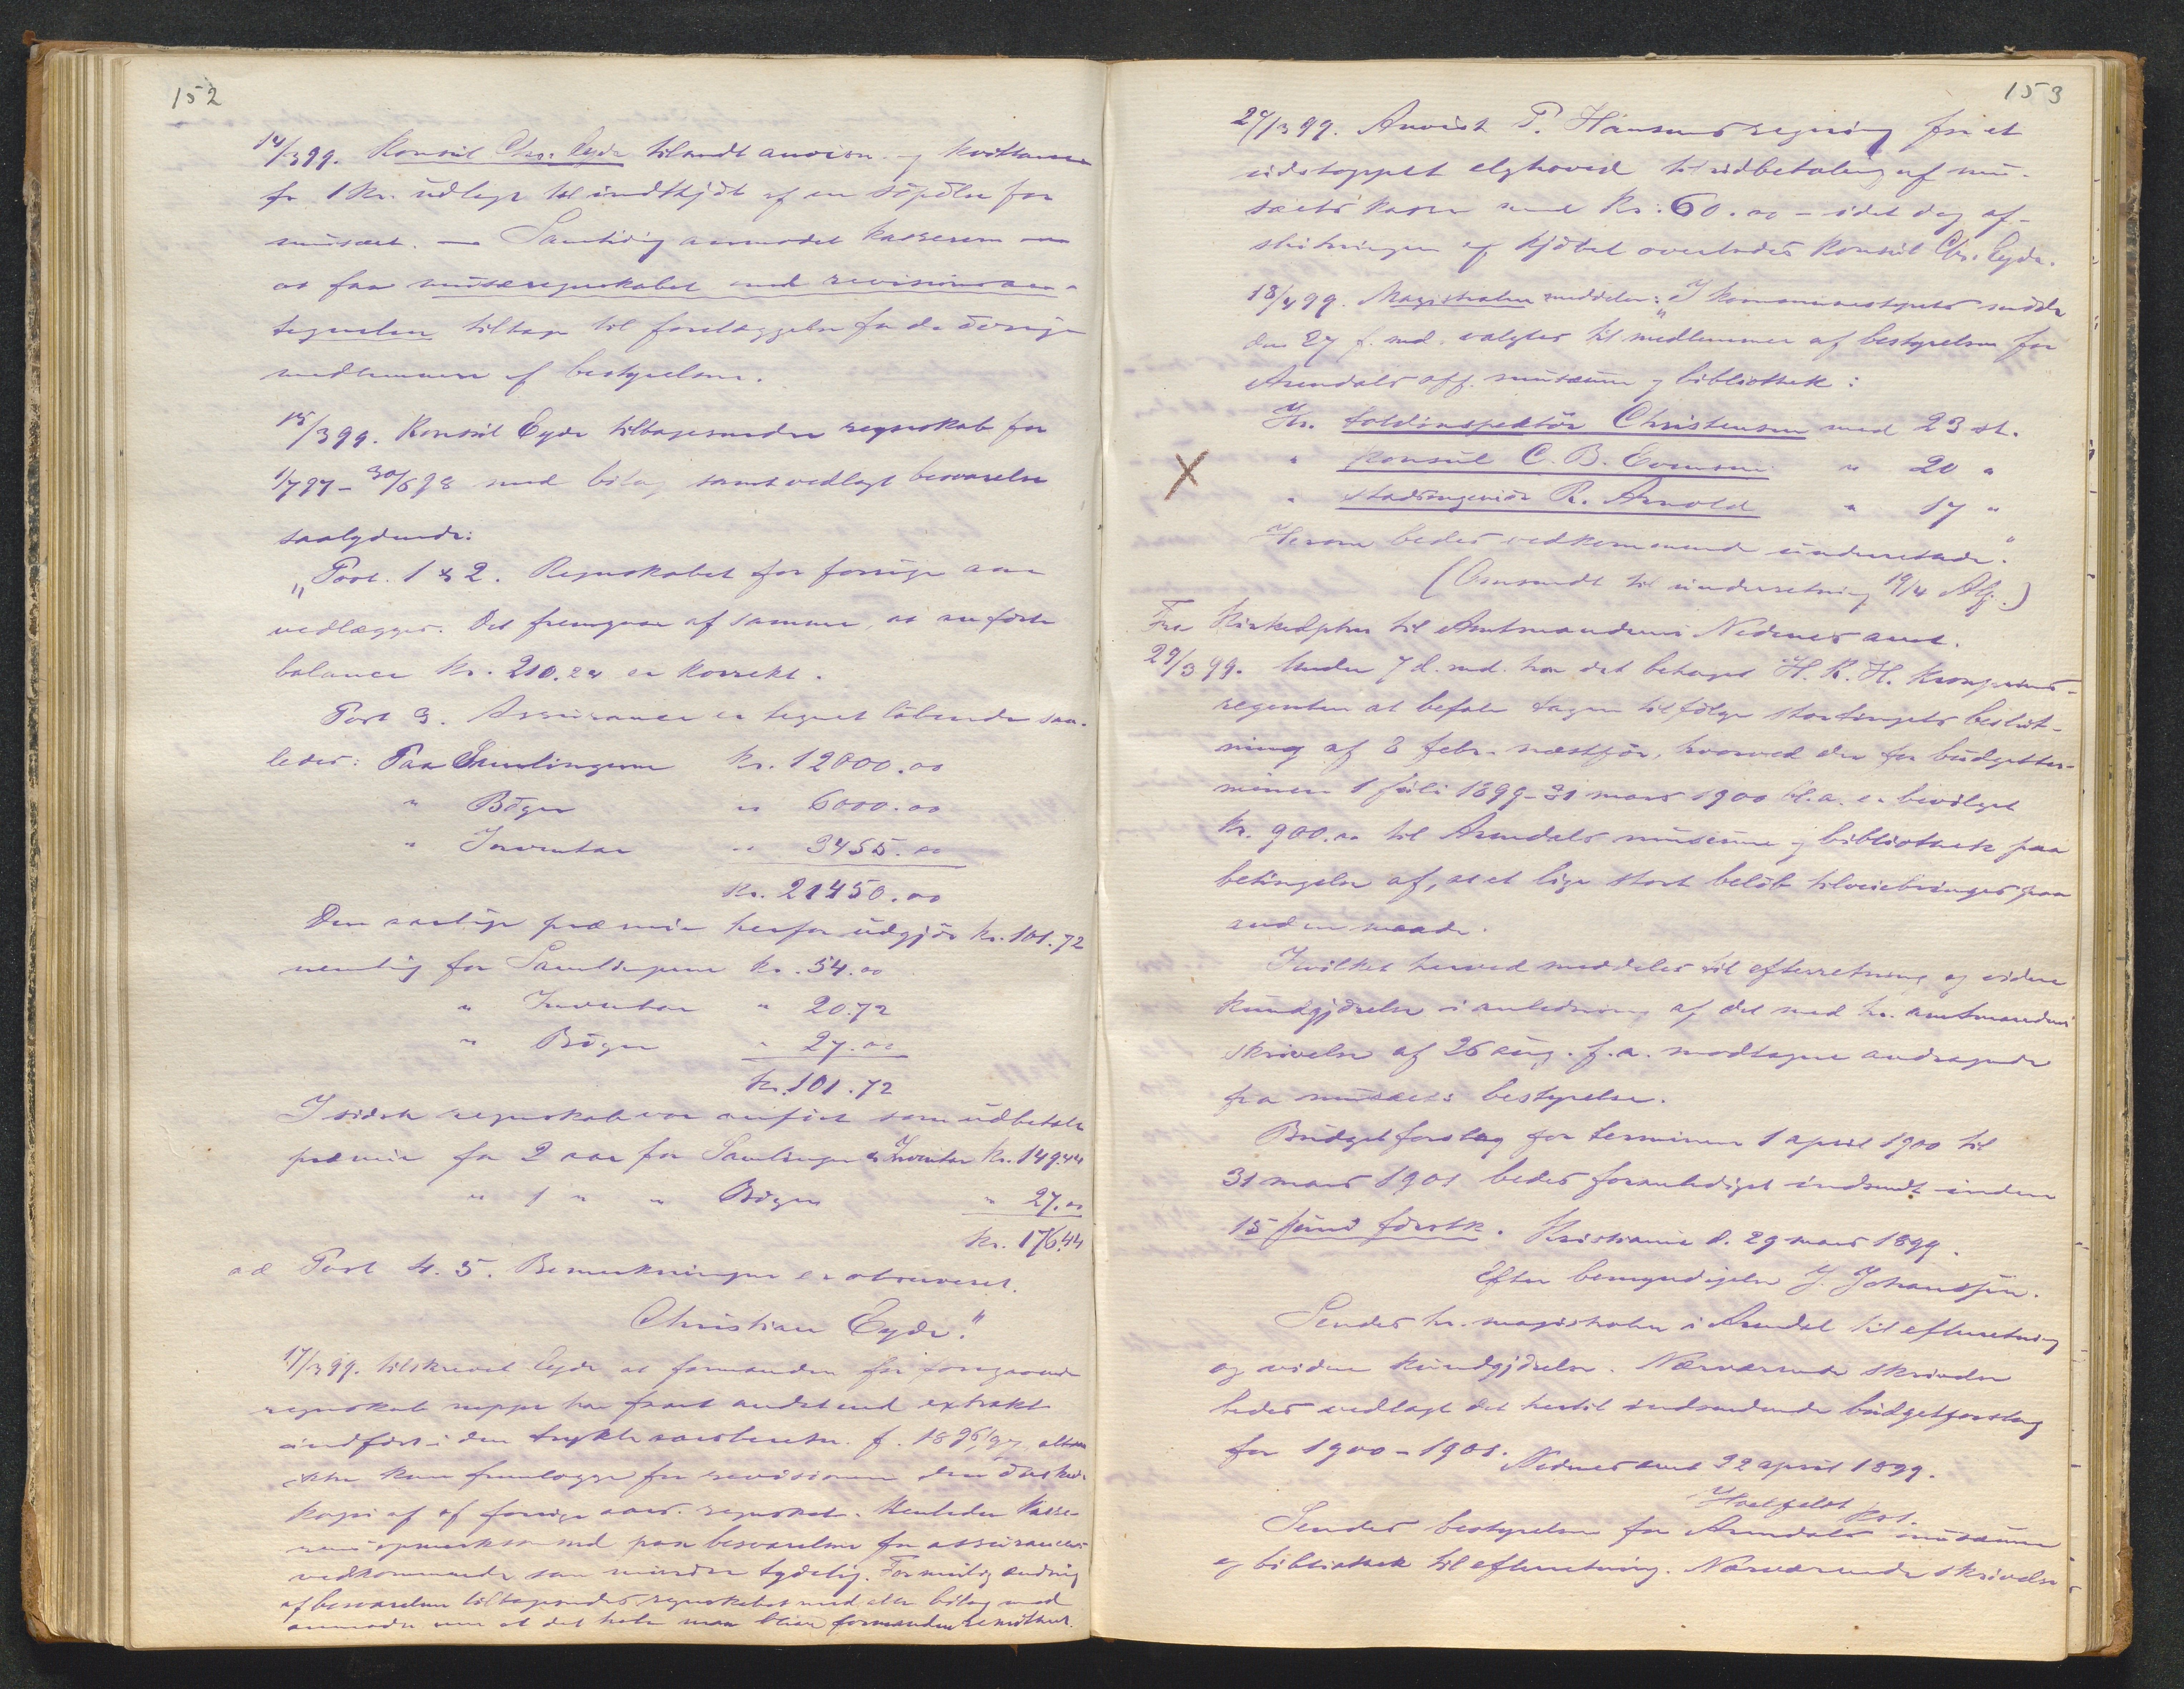 152
14/3 99. Konsul Chr. Eyde tilsendt anvisn. og kvittance
for 1 Kr. udlagt til indkjöb af en söpöler for
musæet. — Samtidig anmodet kassereren om
at faa musæregnskabet med revisionsan-
tegnelser tilbage til forelæggelse for de övrige
medlemmer af bestyrelsen.
15/3 99. Konsul Eyde tilbagesender regnskab for
1/7 97 - 30/6 98 med bilag samt vedlagt besvarelse
saalydende:
"Post. 1 & 2. Regnskabet for forrige aar
vedlægges. Det fremgaar af samme, at anförte
balance Kr. 210.22 er korrekt.
Post 3. Assurance er tegnet löbende saa-
ledes: Paa Samlingerne Kr. 12000.00
" Böger " 6000.00
" Inventar " 3455.00
Kr. 21450.00
Den aarlige præmie herfor udgjör Kr. 101.72
nemlig for Samlingerne Kr. 54.00
" Inventar " 20.72
" Böger " 27.00
Kr. 101.72
I sidste regnskab var anfört som udbetalt
præmie for 2 aar for Samlinger & Inventar Kr. 149.44
" 1 " " Böger " 27.00
Kr. 176.44
ad Post 4. 5. Bemerkningen er observeret.
Christian Eyde."
17/3 99. tilskrevet Eyde at formanden for foregaaende
regnskab neppe har faaet andet end extrakt
indfört i den trykte aarsberetn. f. 1896/97, altsaa
ikke kan fremlægge for revisionen den önskede
kopi af af forrige aars regnskab. Henleder kasse-
rerens opmerksomhed paa besvarelsen for assurancens
vedkommende som mindre tydelig. For mulig ændring
af besvarelsen tilbagesendes regnskabet med alle bilag med
anmodn. om at det hele maa blive formanden remitteret.
153
24/3 99. Anvist P. Hansens regning for et
udstoppet elghoved til udbetaling af mu-
sæets kasse med Kr. 60.00 - idet dog af-
slutningen af kjöbet overlades konsul Chr. Eyde.
18/4 99. Magistraten meddeler: "I kommunestyrets möde
den 27 f. md. valgtes til medlemmer af bestyrelsen for
Arendals off. musæum og bibliothek:
Hr. toldinspektör Christensen med 23 st.
" konsul C. B. Evensen " 20 "
" stadsingeniör R. Arnold " 17 "
Herom bedes vedkommende underrettede."
(Omsendt til underretning 19/4 Alf.)
Fra Kirkedptm. til Amtmanden i Nedenes amt.
29/3 99. Under 7 d. md. har det behaget H. K. H. Kronprins-
regenten at befale tagen tilfölge stortingets beslut-
ning af 8 febr. næstför, hvorved der for budgetter-
minen 1 juli 1899 - 31 mars 1900 bl. a. er bevilget
Kr. 900.00 til Arendals museum og bibliothek paa
betingelse af, at et lige stort belöb tilveiebringes paa
anden maade.
Hvilket herved meddeles til efterretning og videre
kundgjörelse i anledning af det med hr. amtmandens
skrivelse af 26 aug. f. a. modtagne andragende
fra musæets bestyrelse.
Budgetforslag for terminen 1 april 1900 til
31 mars 1901 bedes foranlediget indsendt inden
15 juni förstk. Kristiania d. 29 mars 1899.
Efter bemyndigelse J. Johanssen.
Sendes hr. magistraten i Arendal til efterretning
og videre kundgjörelse. Nærværende skrivelse
bedes vedlagt det hertil indsendende budgetforslag
for 1900 - 1901. Nedenes amt 22 april 1899.
Hvitfeldt kst.
Sendes bestyrelsen for Arendals musæum
og bibliothek til efterretning. Nærværende skrivelse